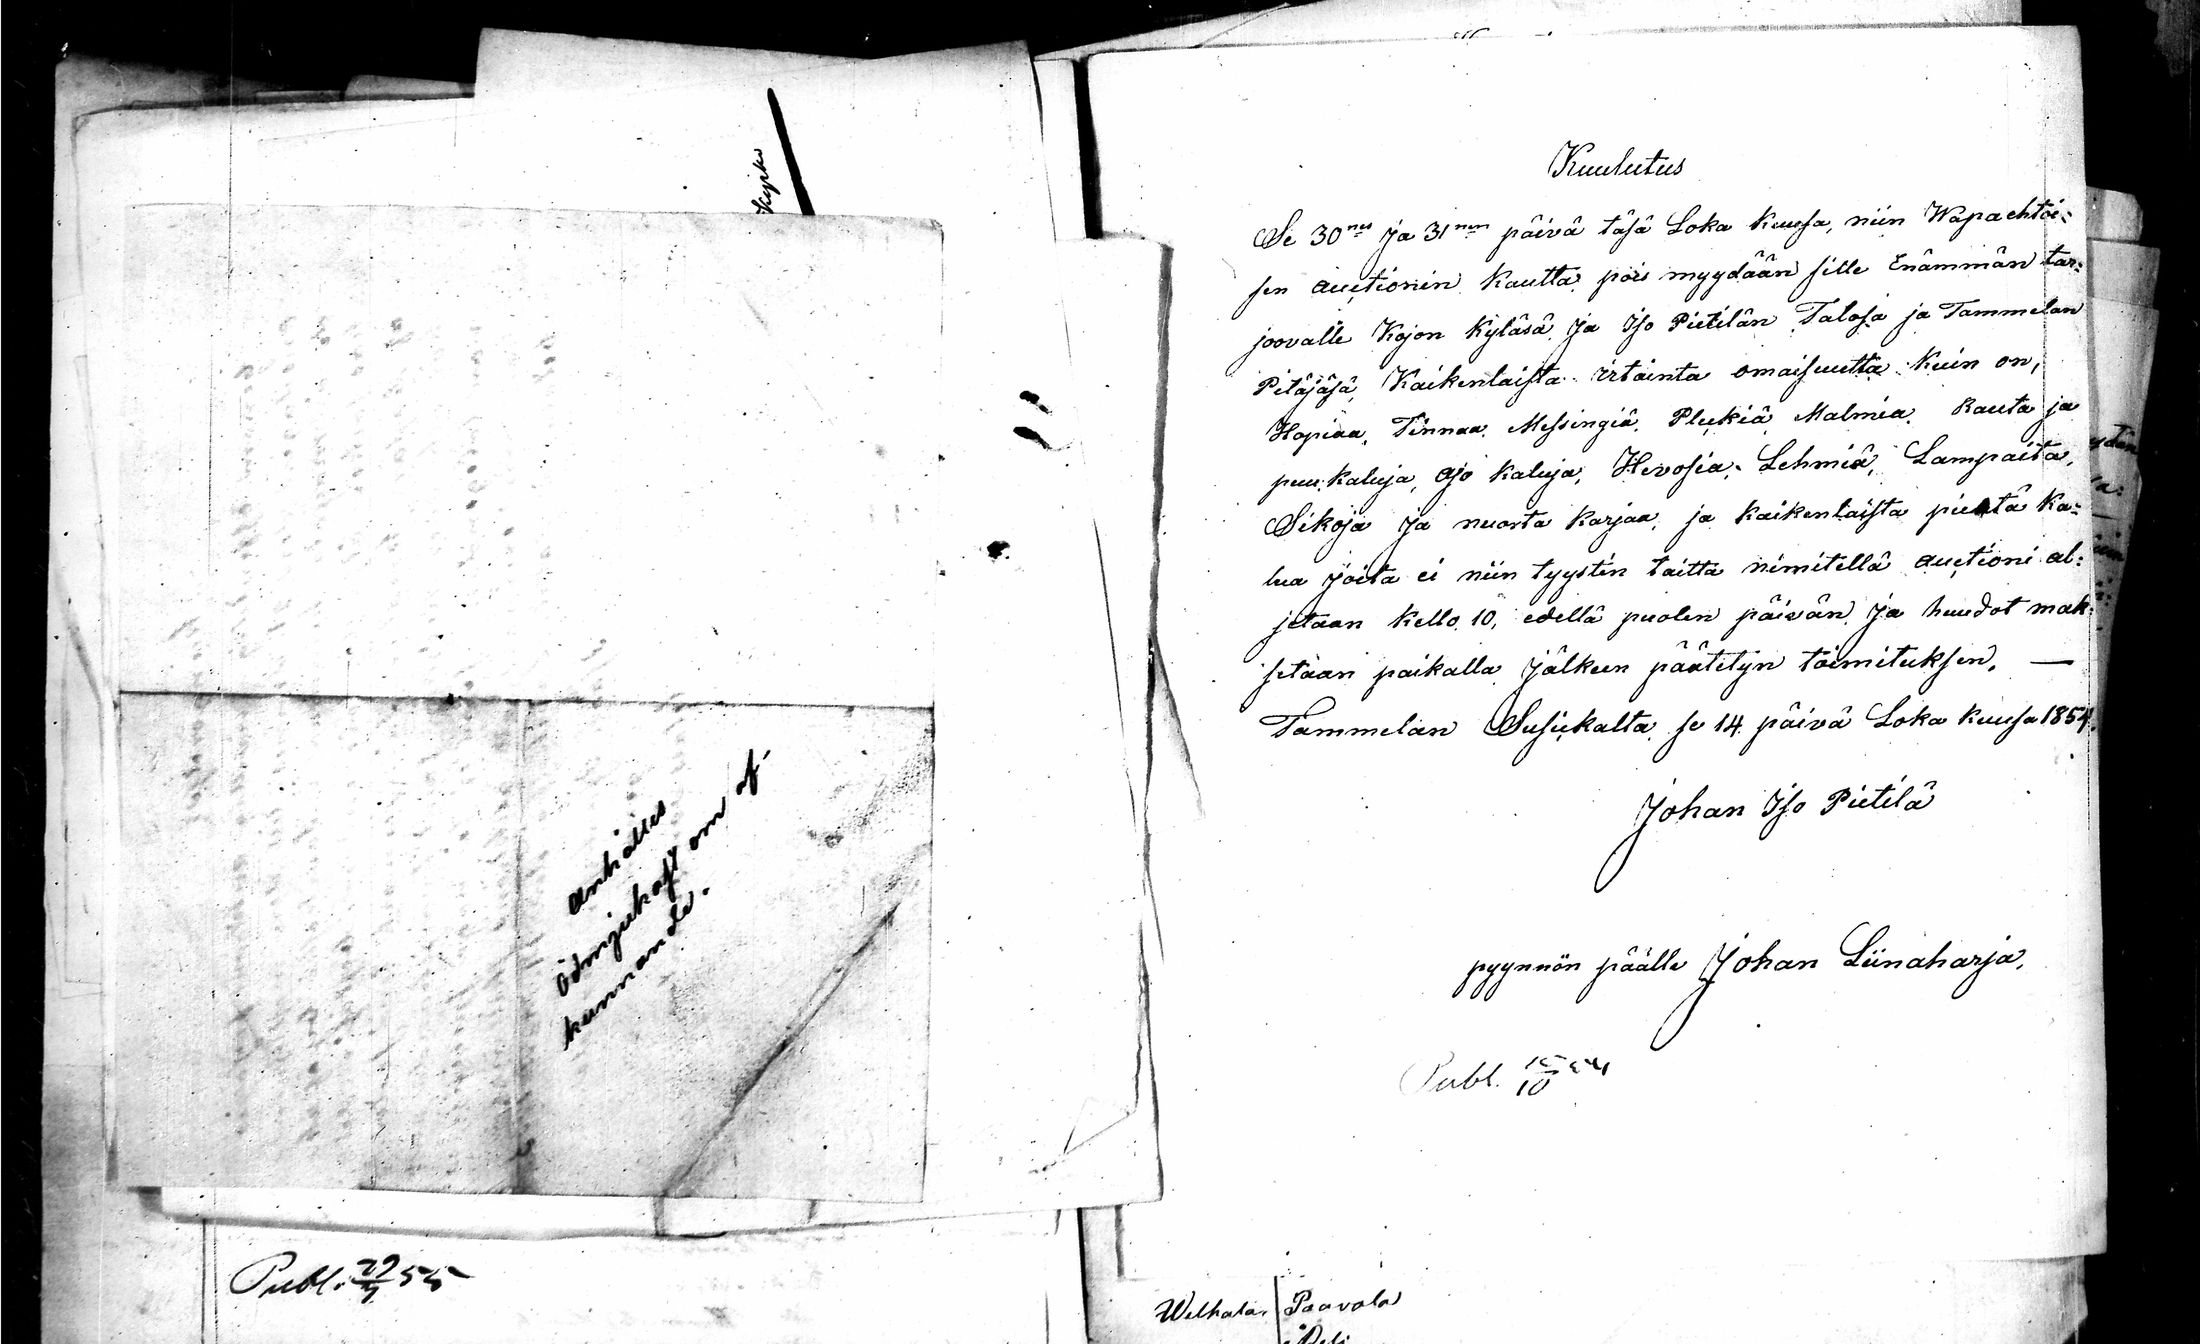 Anhålles
ödmjukast om af-
kunnande.
Publ. 29/4 55
Kuulutus
Se 30nes ja 31nen päivä täsä Loka kuusa, niin Wapaehtoi=
sen auctionin kautta pois myydään sille Enämmän tar=
joovalle Kojon Kyläsä ja Iso Pietilän Talosa ja Tammelan
Pitäjäsä, Kaikenlaista irtainta omaisuutta kuin on,
Hopiaa, Tinnaa, Messingiä, Pleckiä, Malmia, Rauta ja
puu kaluja, Ajo kaluja, Hevosia, Lehmiä, Lampaita,
Sikoja ja nuorta karjaa, ja kaikenlaista pientä ka=
lua joita ei niin tyystin taitta nimitellä auctioni al=
jetaan kello 10, edellä puolen päivän ja huudot mak=
setaan paikalla jälkeen päätetyn toimituksen. —
Tammelan Susikalta se 14 päivä Loka kuusa 1854.
Johan Iso Pietilä
pyynnön päälle Johan Liinaharja,
Publ.
Welhala. Paavola